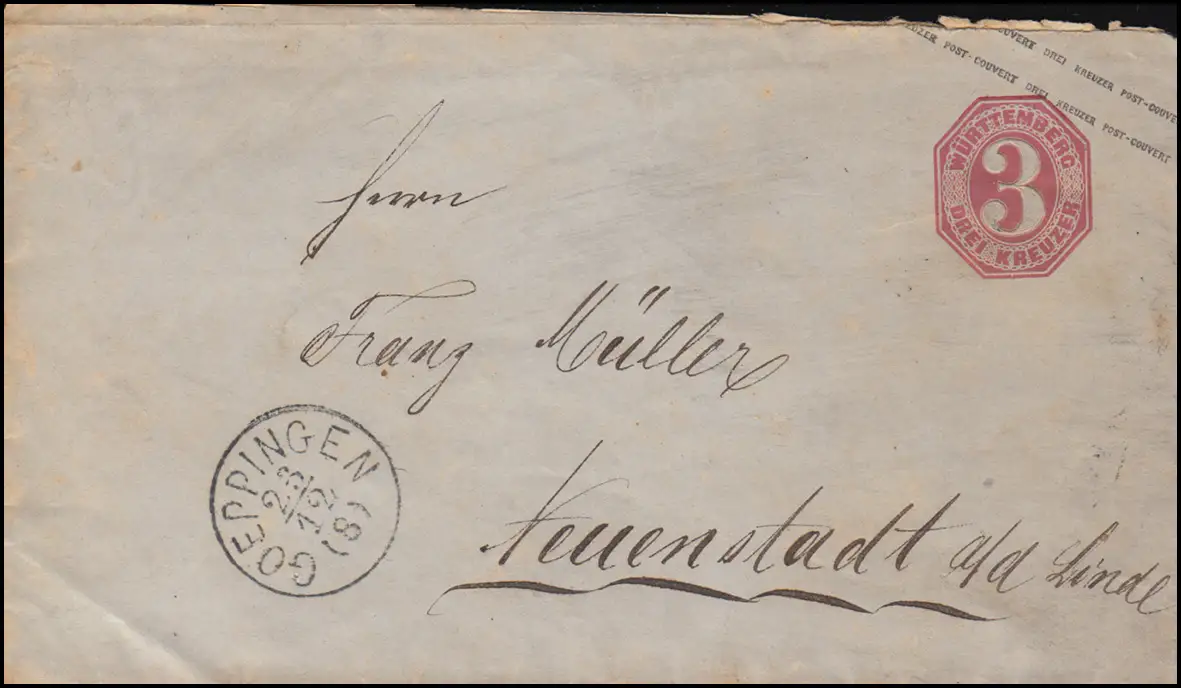 EUZER POST-COUVERT DREI KREUZER POST-COUVERT
COUVERT DREI KREUZER POST-COUVE
WÜRTTEMBERG
3
DREI KREUZER
Herrn
Franz Müller
Neuenstadt a/d Linde
GOEPPINGEN
23
12
(8)